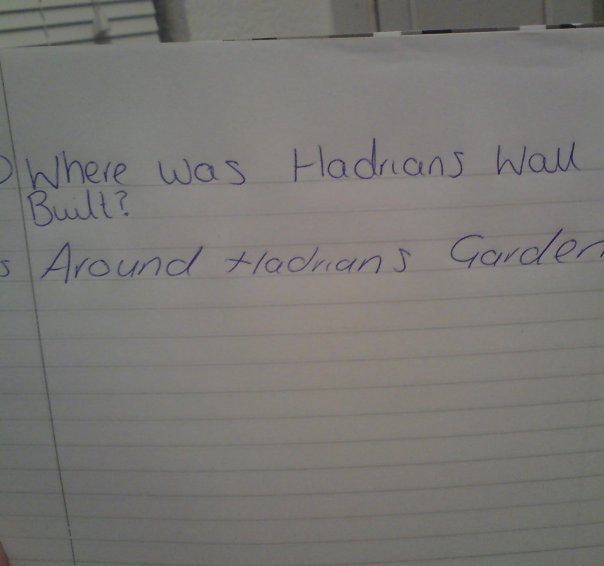 Where was Hadrians Wall
Built?
s Around Hadrians Garden